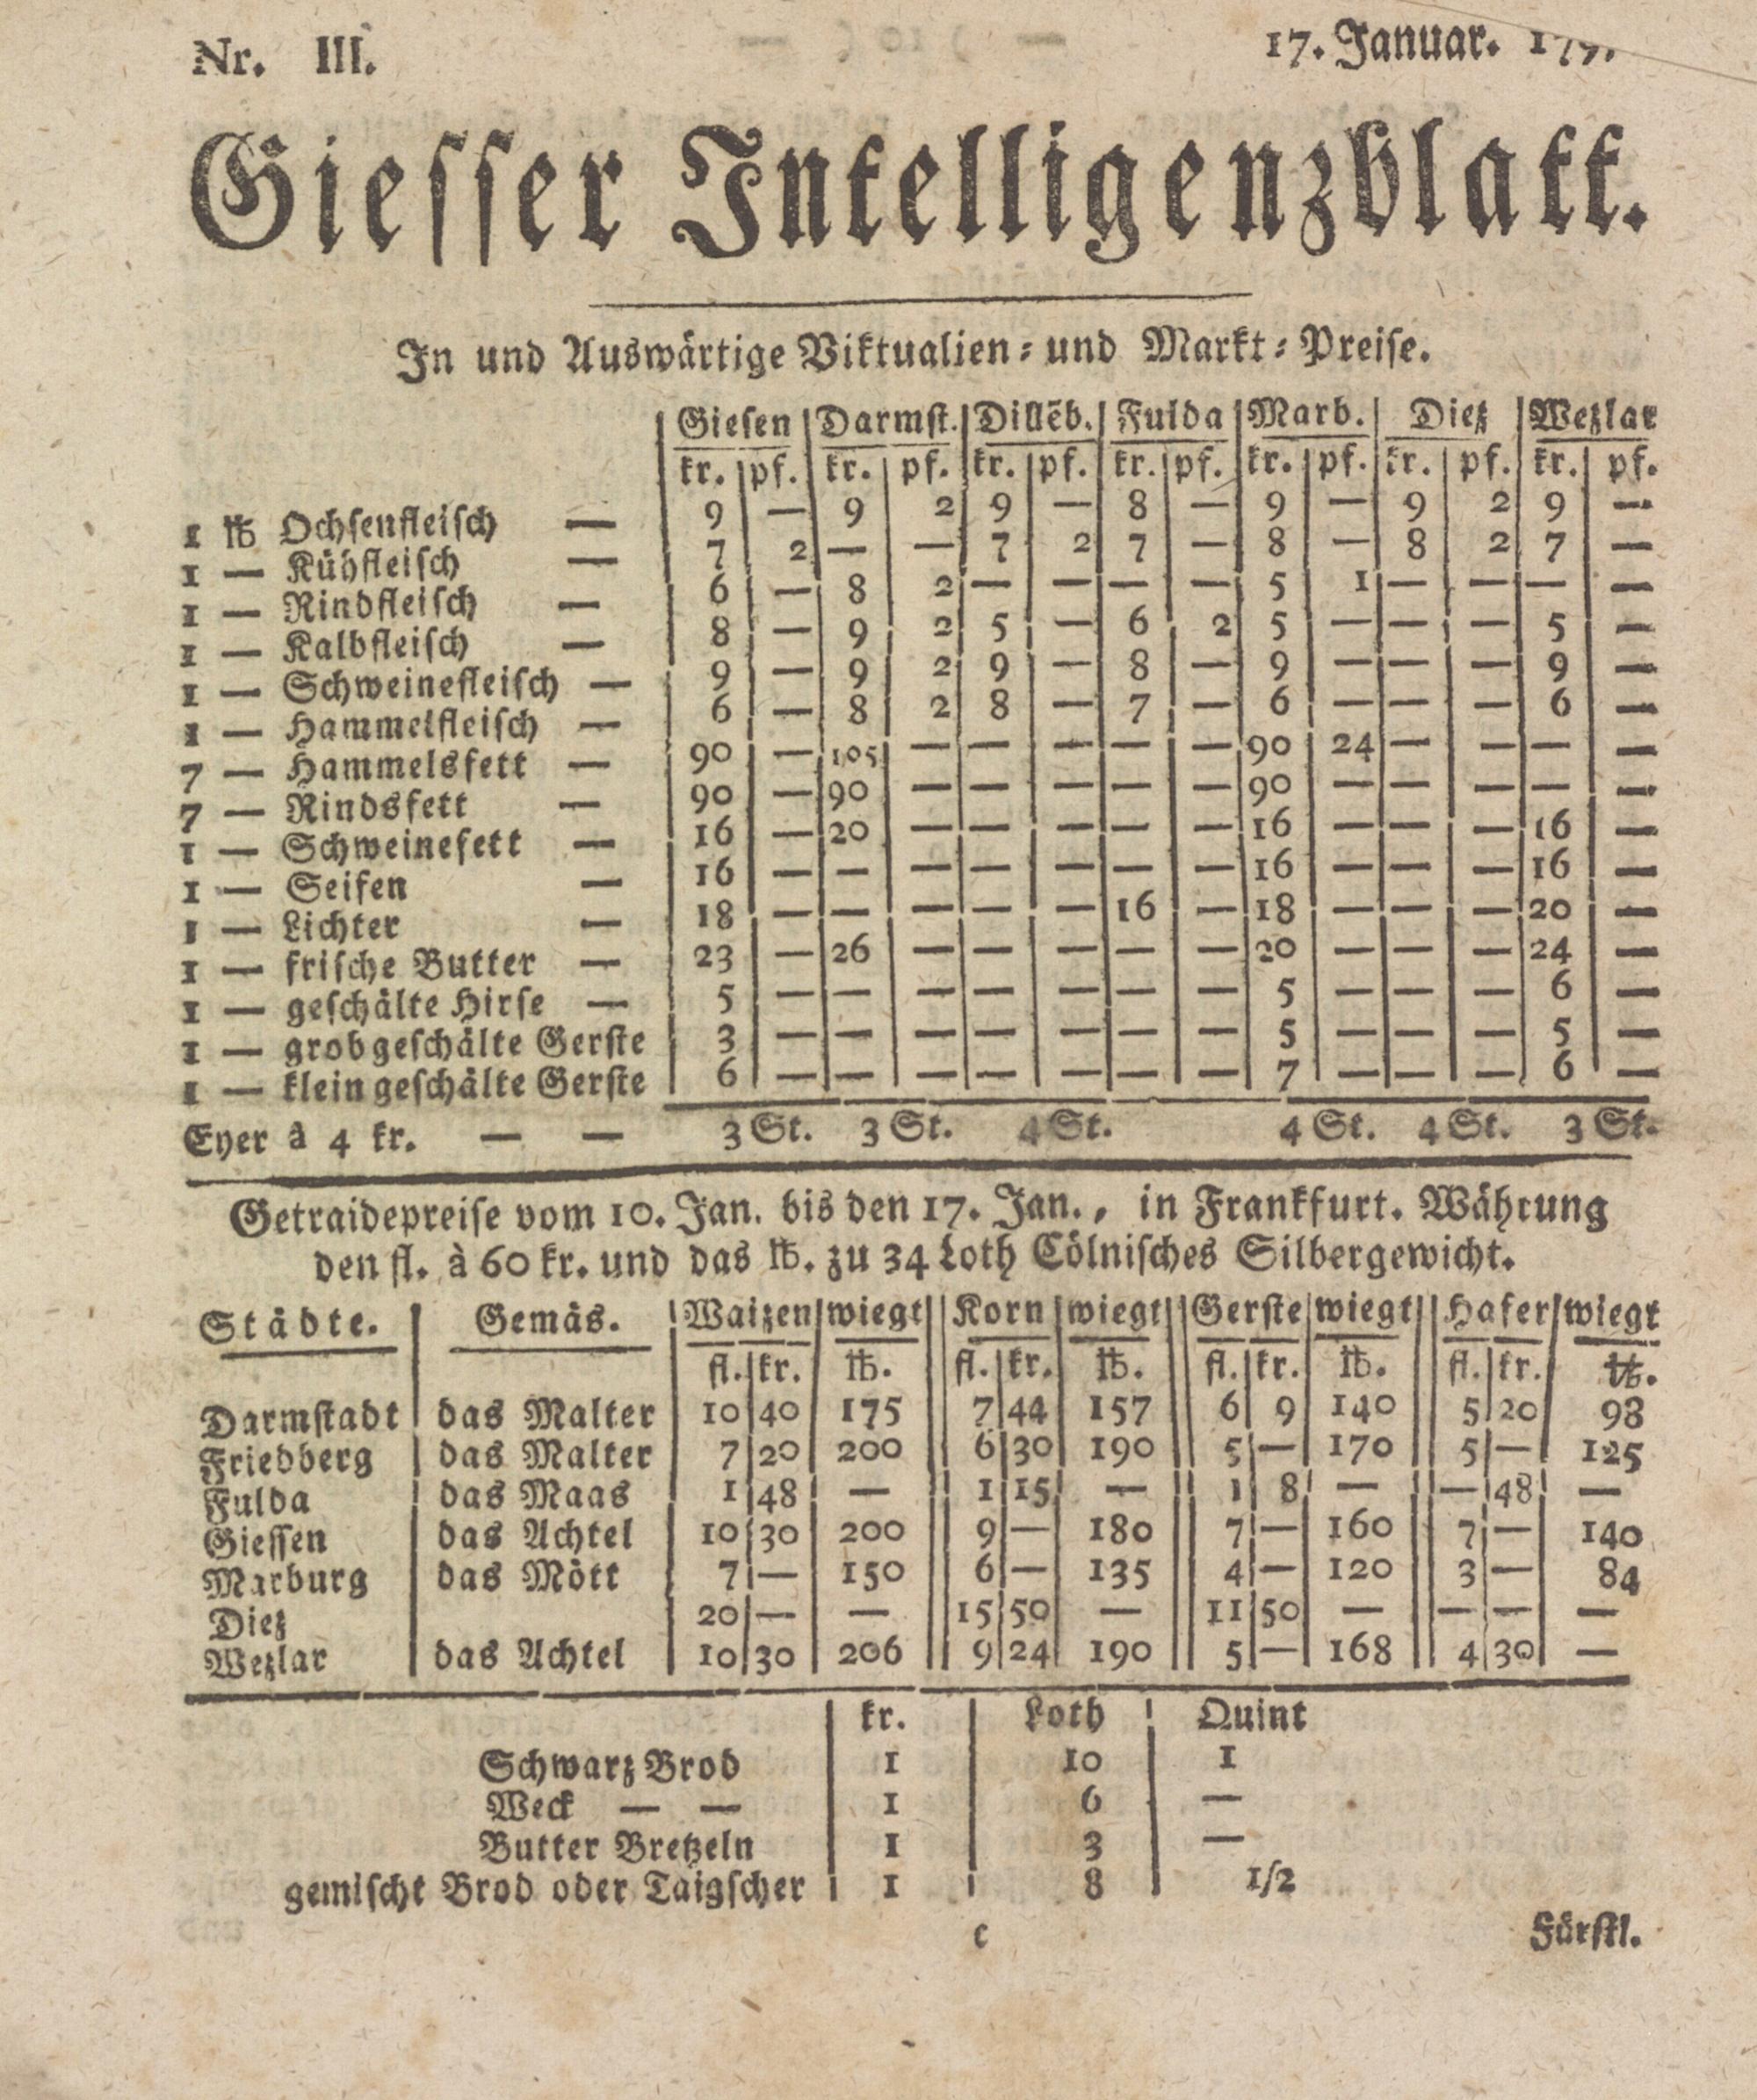 Nr. III. 17. Januar.
Giesser Intelligenzblatt.
In und Auswärtige Viktualien- und Markt-Preise.
Giesen Darmst. Dillēb. Fulda Marb. Dietz Wetzlar
kr. pf. kr. pf. kr. pf. kr. pf. kr. pf. kr. pf. kr. pf.
1 ℔ Ochsenfleisch — 9 — 9 2 9 — 8 — 9 — 9 2 9 —
1 — Kühfleisch — 7 2 — — 7 2 7 — 8 — 8 2 7 —
1 — Rindfleisch — 6 — 8 2 — — — — 5 1 — — — —
1 — Kalbfleisch — 8 — 9 2 5 — 6 2 5 — — — 5 —
1 — Schweinefleisch — 9 — 9 2 9 — 8 — 9 — — — 9 —
1 — Hammelfleisch — 6 — 8 2 8 — 7 — 6 — — — 6 —
7 — Hammelsfett — 90 — 105 — — — — — 90 24 — — — —
7 — Rindsfett — 90 — 90 — — — — — 90 — — — — —
1 — Schweinefett — 16 — 20 — — — — — 16 — — — 16 —
1 — Seifen — 16 — — — — — — — 16 — — — 16 —
1 — Lichter — 18 — — — — — 16 — 18 — — — 20 —
1 — frische Butter — 23 — 26 — — — — — 20 — — — 24 —
1 — geschälte Hirse — 5 — — — — — — — 5 — — — 6 —
1 — grob geschälte Gerste 3 — — — — — — — 5 — — — 5 —
1 — klein geschälte Gerste 6 — — — — — — — 7 — — — 6 —
Eyer â 4 kr. — — 3 St. 3 St. 4 St. 4 St. 4 St. 3 St.
Getraidepreise vom 10. Jan. bis den 17. Jan., in Frankfurt. Währung
den fl. à 60 kr. und das ℔. zu 34 Loth Cölnisches Silbergewicht.
Städte. Gemäs. Waitzen wiegt Korn wiegt Gerste wiegt Hafer wiegt
fl. kr. ℔. fl. kr. ℔. fl. kr. ℔. fl. kr. ℔.
Darmstadt das Malter 10 40 175 7 44 157 6 9 140 5 20 98
Friedberg das Malter 7 20 200 6 30 190 5 — 170 5 — 125
Fulda das Maas 1 48 — 1 15 — 1 8 — — 48 —
Giessen das Achtel 10 30 200 9 — 180 7 — 160 7 — 140
Marburg das Mött 7 — 150 6 — 135 4 — 120 3 — 84
Dietz 20 — — 15 50 — 11 50 — — — —
Wetzlar das Achtel 10 30 206 9 24 190 5 — 168 4 30 —
kr. Loth Quint
Schwarz Brod 1 10 1
Weck — — 1 6 —
Butter Bretzeln 1 3 —
gemischt Brod oder Taigscher 1 8 1/2
c Fürstl.